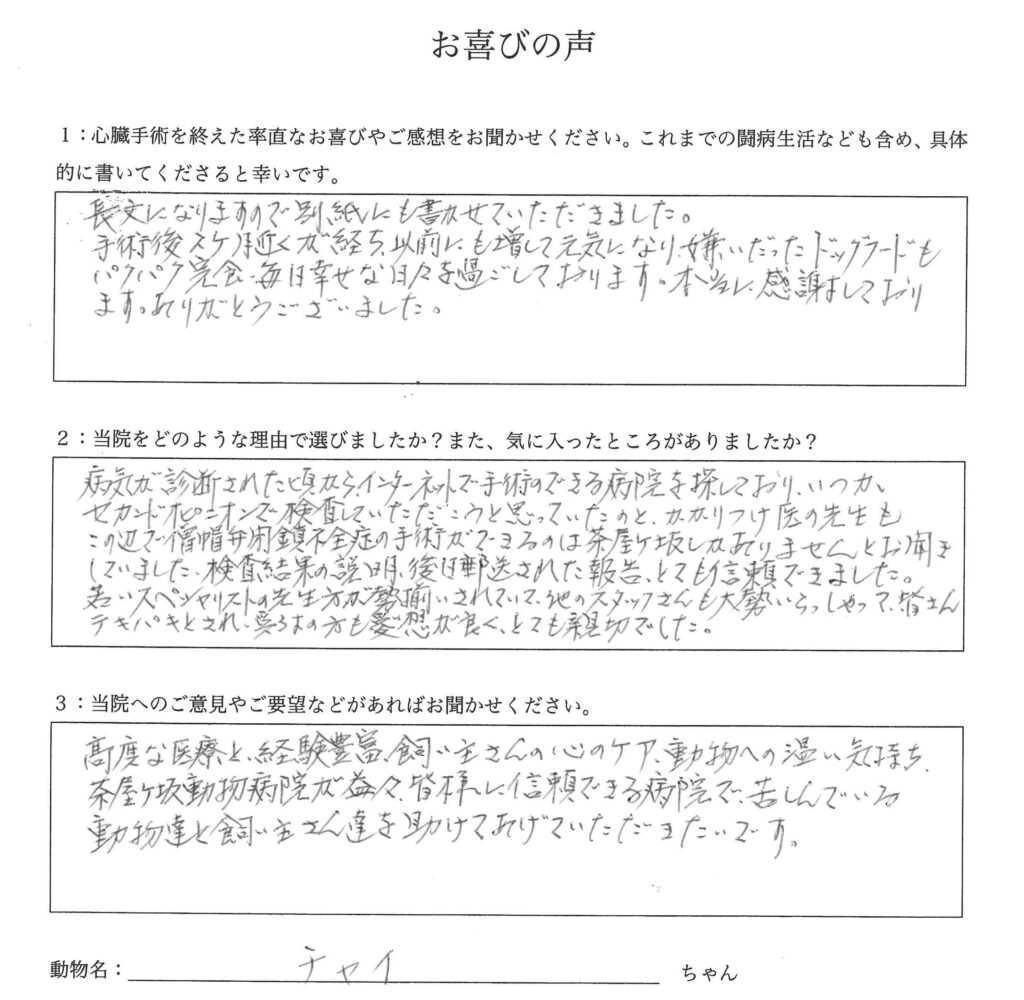 お喜びの声
1：心臓手術を終えた率直なお喜びやご感想をお聞かせください。これまでの闘病生活なども含め、具体
的に書いてくださると幸いです。
長文になりますので別紙にも書かせていただきました。
手術後2ケ月近くが経ち、以前にも増して元気になり、嫌いだったドッグフードも
パクパク完食、毎日幸せな日々を過ごしております。本当に感謝しており
ます。ありがとうございました。
2：当院をどのような理由で選びましたか？また、気に入ったところがありましたか？
病気が診断された頃から、インターネットで手術のできる病院を探しており、いつか、
セカンドオピニオンで検査していただこうと思っていたのと、かかりつけ医の先生も
この辺で僧帽弁閉鎖不全症の手術ができるのは茶屋ヶ坂しかありませんとお聞き
していました、検査結果の説明、後日郵送された報告、とても信頼できました。
若いスペシャリストの先生方が勢揃いされていて、他のスタッフさんも大勢いらっしゃって、皆さん
テキパキとされ、の方も愛想が良く、とても親切でした。
3：当院へのご意見やご要望などがあればお聞かせください。
高度な医療と、経験豊富、飼い主さんの心のケア、動物への温い気持ち、
茶屋ヶ坂動物病院が益々、皆様に信頼できる病院で、苦しんでいる
動物達と飼い主さん達を助けてあげていただきたいです。
動物名：チャイ ちゃん